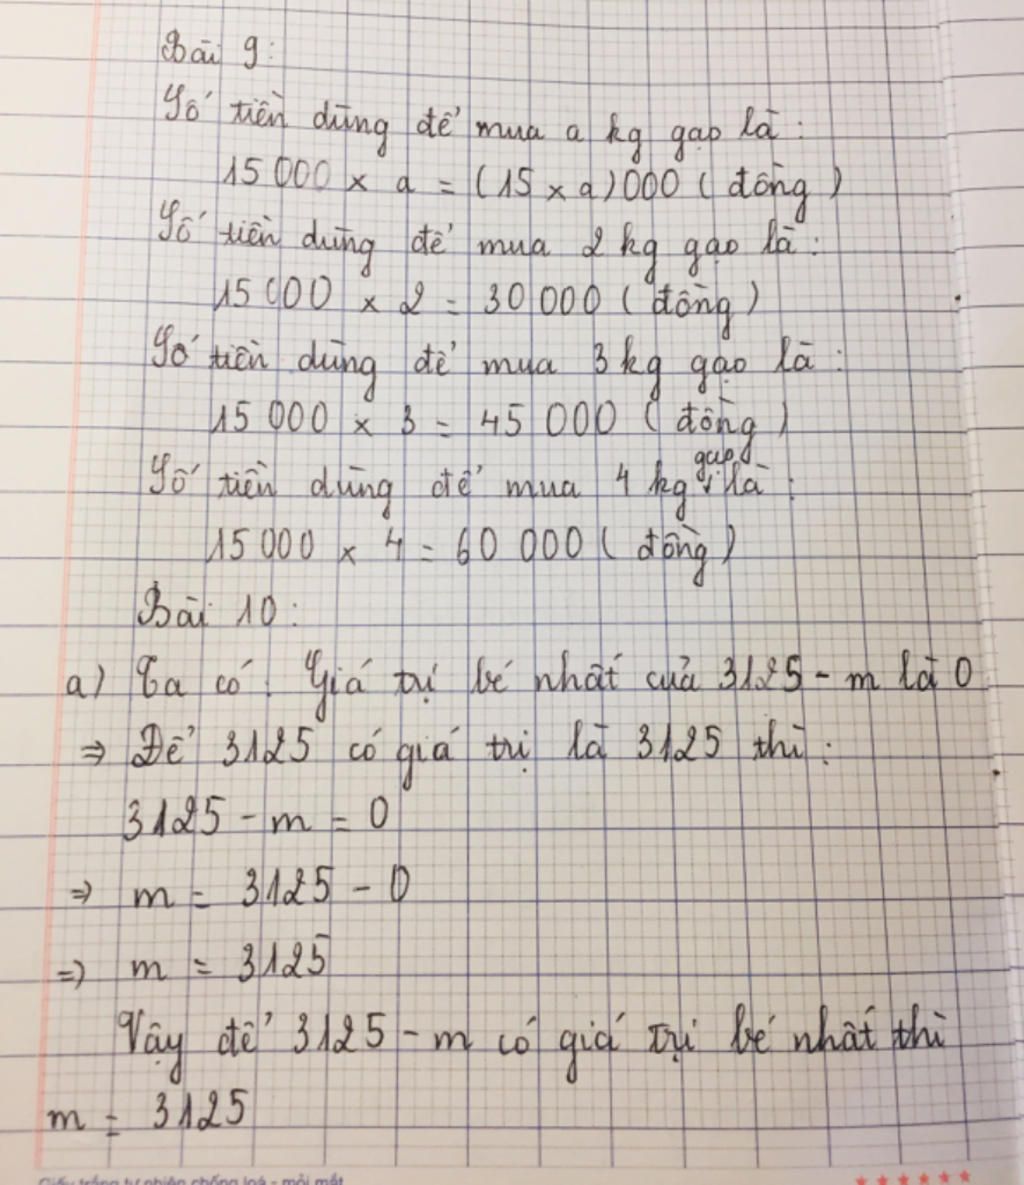 Bài 9:
Số tiền dùng để mua a kg gạo là:
15 000 x a = (15 x a) 000 (đồng)
Số tiền dùng để mua 2 kg gạo là:
15 000 x 2 = 30 000 (đồng)
Số tiền dùng để mua 3 kg gạo là:
15 000 x 3 = 45 000 (đồng)
Số tiền dùng để mua 4 kg gạo là:
15 000 x 4 = 60 000 (đồng)
Bài 10:
a) Ta có: Giá trị bé nhất của 3125 - m là 0
⇒ Để 3125 có giá trị là 3125 thì:
3125 - m = 0
⇒ m = 3125 - 0
⇒ m = 3125
Vậy để 3125 - m có giá trị bé nhất thì
m = 3125
Giấy trắng tự nhiên chống loá - mỏi mắt